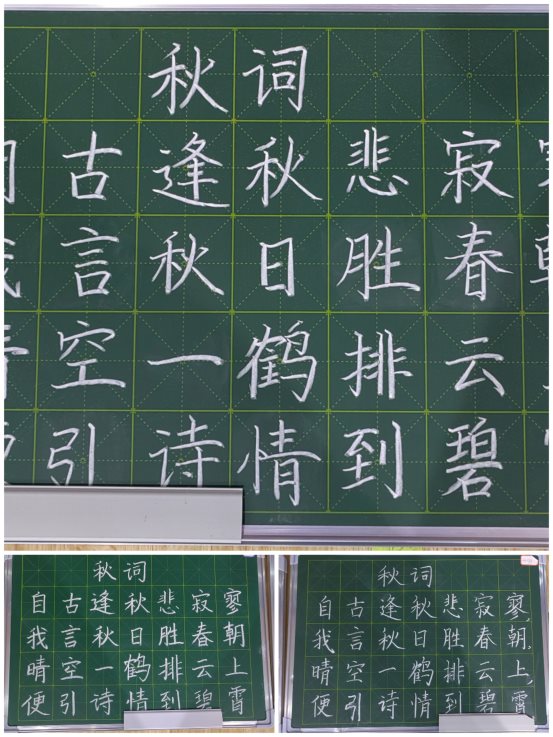 秋词
古逢秋悲寂
言秋日胜春
空一鹤排云
引诗情到碧
秋词
自古逢秋悲寂寥
我言秋日胜春朝
晴空一鹤排云上
便引诗情到碧霄
秋词
自古逢秋悲寂寥
我言秋日胜春朝
晴空一鹤排云上
便引诗情到碧霄